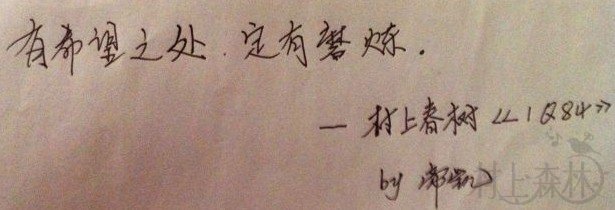 有希望之处.定有磨炼.
— 村上春树《1Q84》
by
村上森林